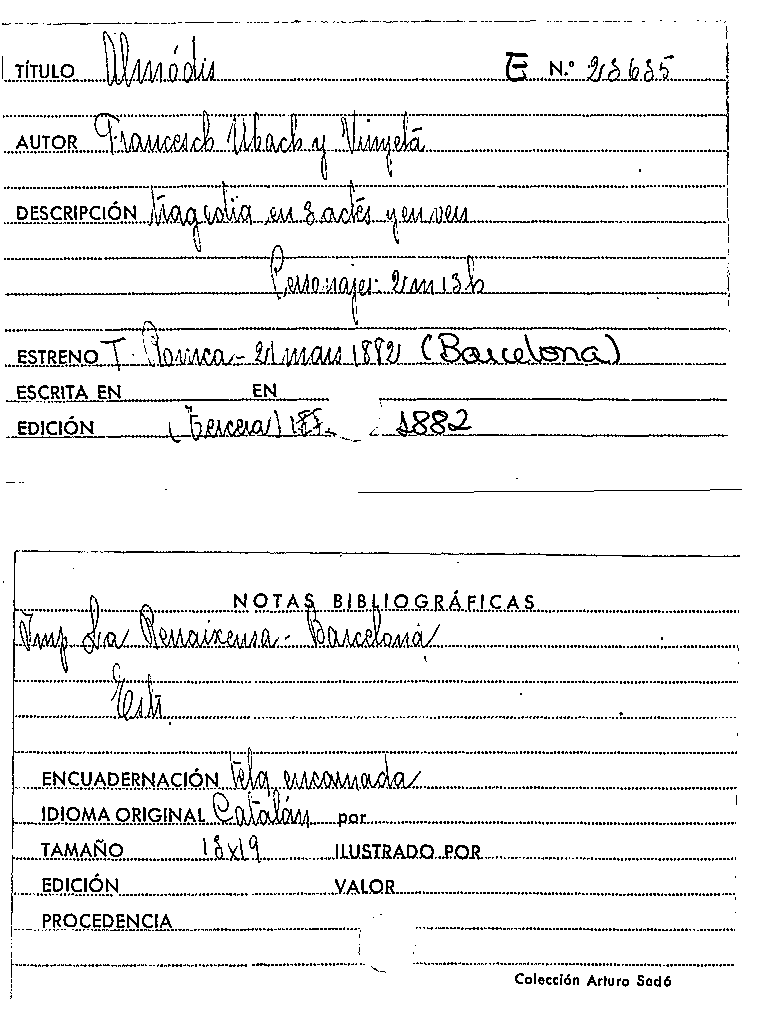 TÍTULO Almódis E N.º 23635
AUTOR Francesch Ubach y Vinyetá
DESCRIPCIÓN tragedia en 3 actes y en vers
Personajes: 2 m 13 h
ESTRENO T. Romea - 21 mars 1882 (Barcelona)
ESCRITA EN EN
EDICIÓN (Tercera) 1882
NOTAS BIBLIOGRÁFICAS
Imp La Renaixensa - Barcelona
ENCUADERNACIÓN tela encarnada
IDIOMA ORIGINAL Catalán por
TAMAÑO 13x19 ILUSTRADO POR
EDICIÓN VALOR
PROCEDENCIA
Colección Arturo Sedó